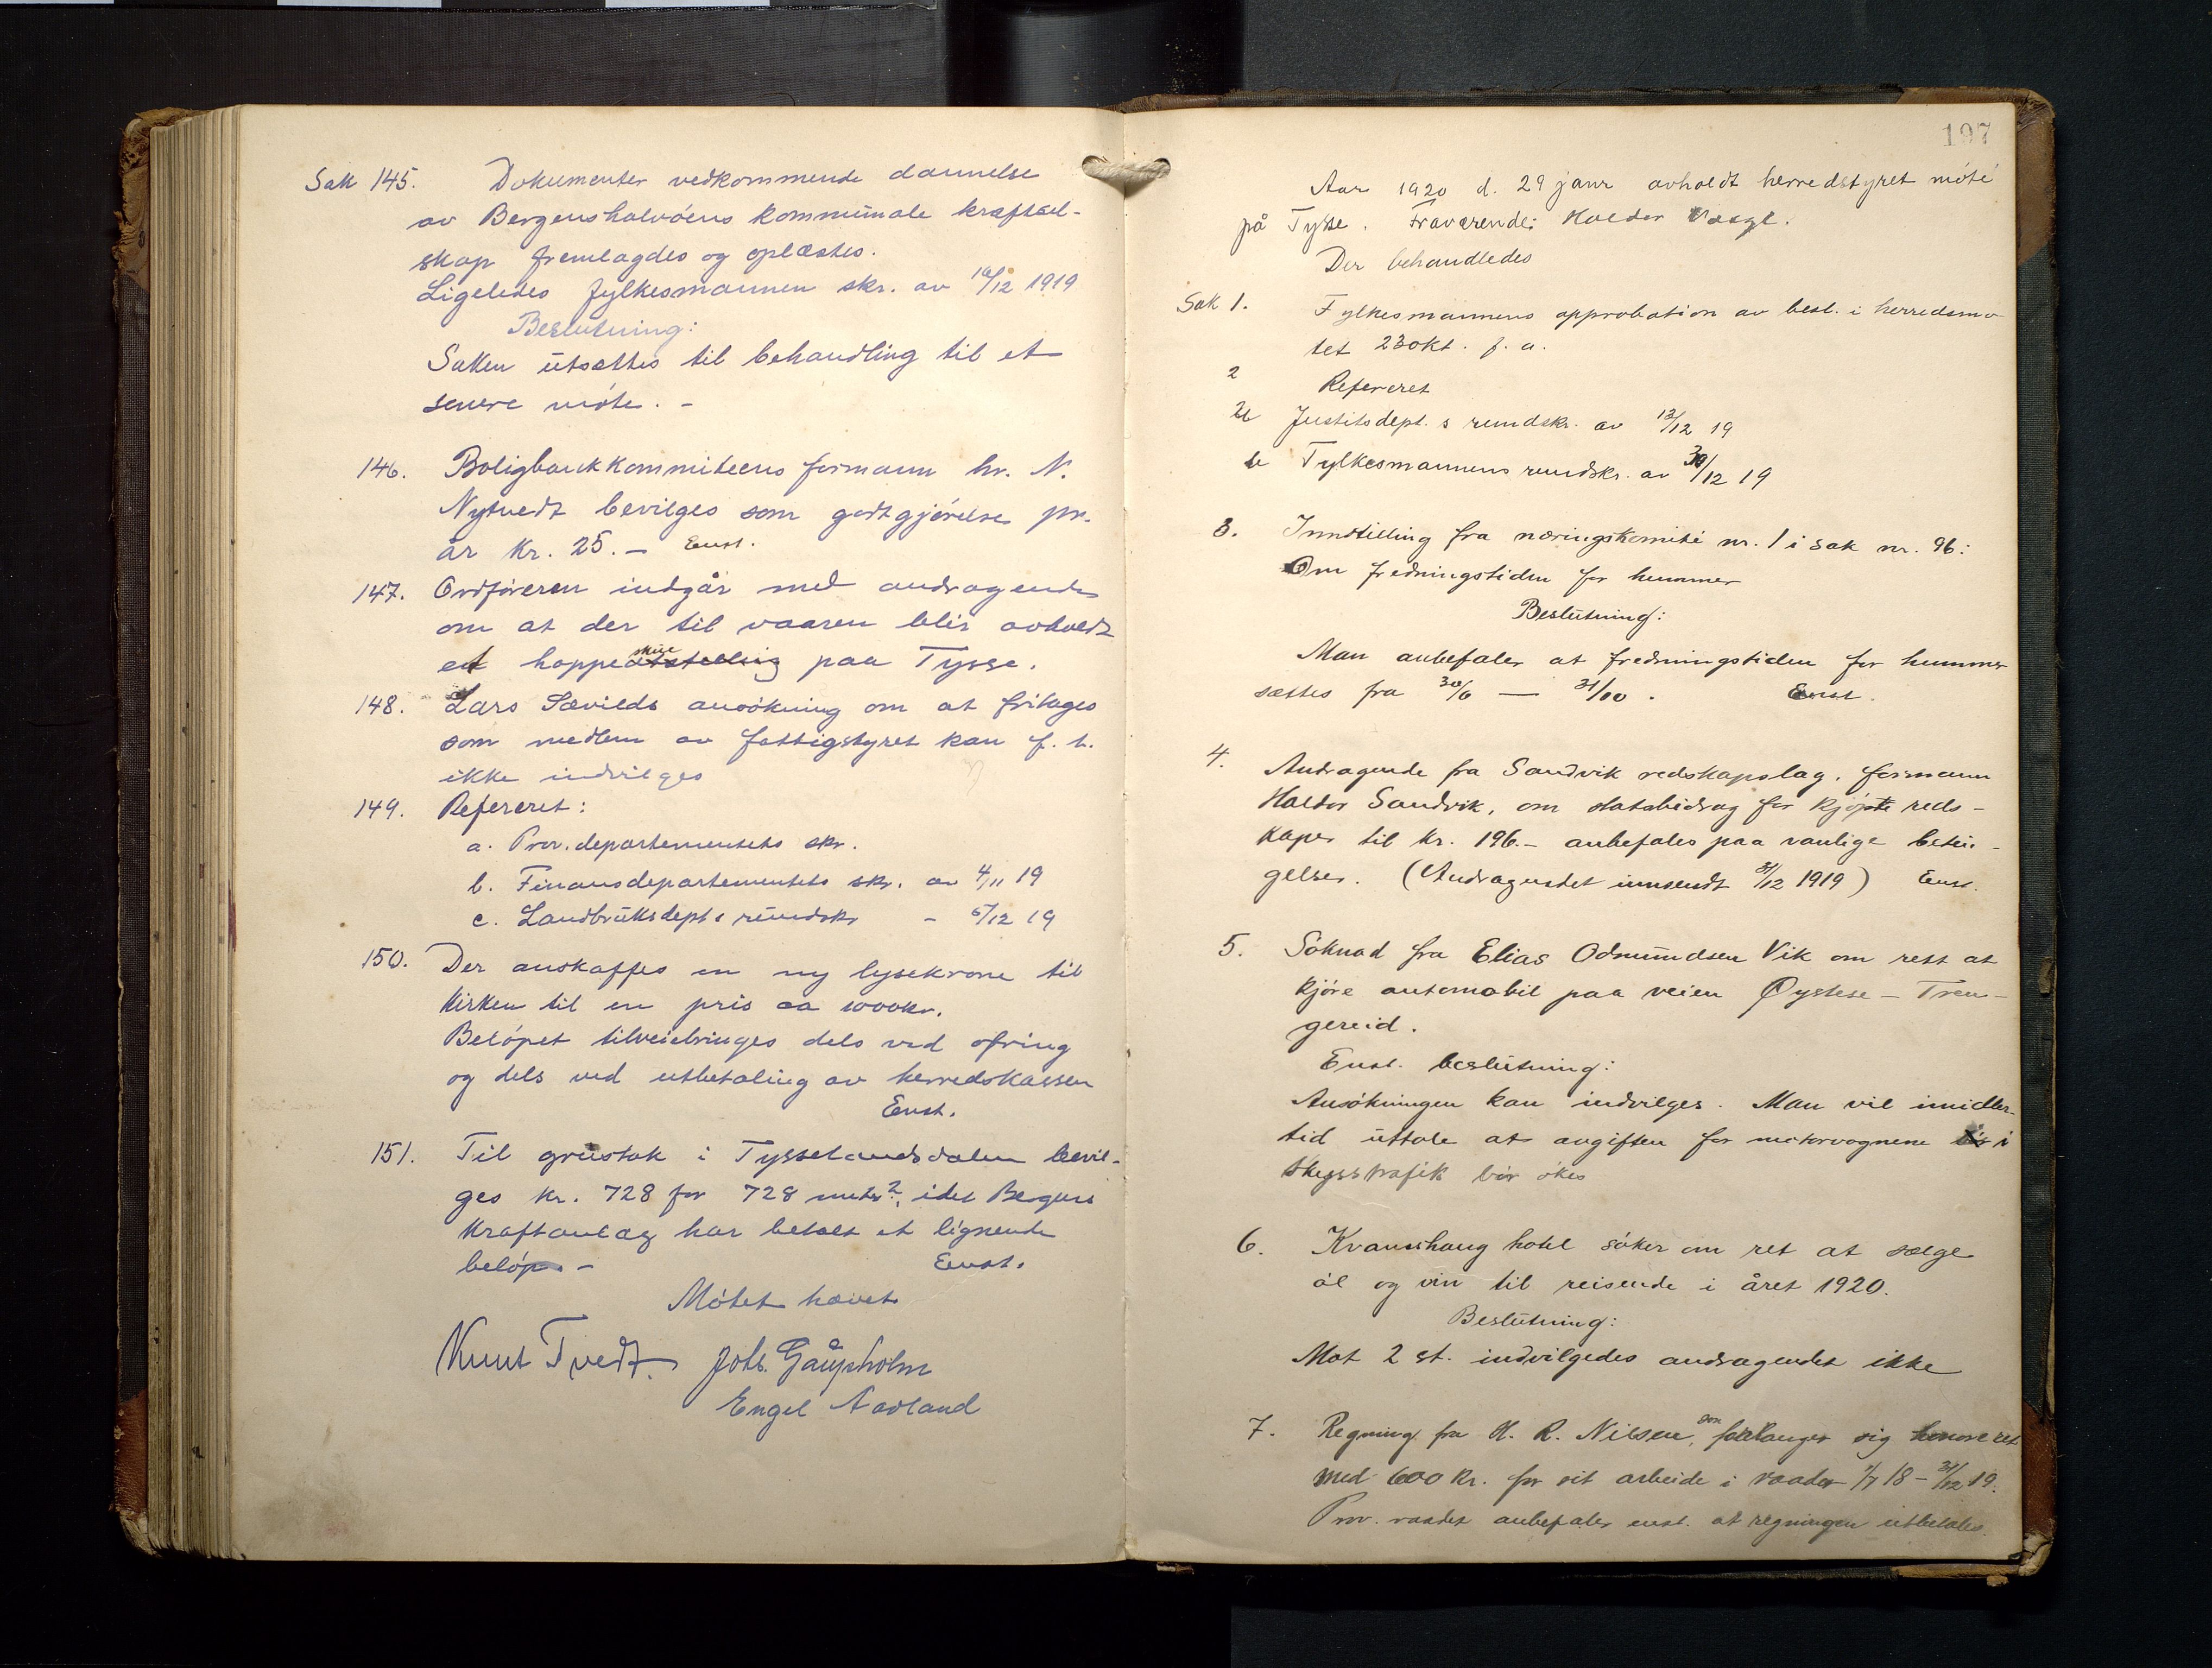 Sak 145. Dokumenter vedkommende dannelse
av Bergenshalvöens kommunale kraftsel-
skap fremlagdes og oplæstes.
Ligeledes fylkesmannen skr. av 16/12 1919
Beslutning:
Saken utsættes til behandling til et
senere möte. -
146. Boligbankkommiteens formann hr. N.
Nytvedt bevilges som godtgjörelse pr.
år kr. 25.- Enst.
147. Ordföreren indgår med andragende
om at der til vaaren blir avholdt
et hoppe paa Tysse.
148. Lars Sævilds ansökning om at fritages
som medlem av fattigstyret kan f. t.
ikke indvilges
149. Refereret:
a. Prov. departementets skr.
b. Finansdepartementets skr. av 4/11 19
c. Landbruksdept s rundskr - 5/12 19
150. Der anskaffes en ny lysekrone til
kirken til en pris ca 1000kr.
Belöpet tilveiebringes dels ved ofring
og dels ved utbetaling av herredskassen
Enst.
151. Til grustak i Tysselandsdalen bevil-
ges kr. 728 for 728 meter², idet Bergens
Kraftanlæg har betalt et lignende
belöp. - Enst.
Mötet hævet
Knut Tvedt. Johs. Gåupholm
Engel Aadland
197
Aar 1920 d. 29 janr avholdt herredstyret möte
på Tysse. Fraværende: Haldor
Der behandledes
Sak 1. Fylkesmannens approbation av besl. i herredsmö
tet 23 okt. f. a.
2 Refereret
Justitsdept. s rundskr. av 13/12 19
Fylkesmannens rundskr. av 30/12 19
3. Inndstilling fra næringskomite nr. 1 i sak nr. 96:
Om fredningstiden for hummer
Beslutning:
Man anbefaler at fredningstiden for hummer
sættes fra 30/6 — 31/10. Enst.
4. Andragende fra Sandvik redskapslag, formann
Haldor Sandvik, om statsbidrag for kjöpte reds-
kaper til kr. 196.- anbefales paa vanlige betin-
gelser. (Andragendet innsendt 31/12 1919) Enst.
5. Söknad fra Elias Odmundsen Vik om rett at
kjöre automobil paa veien Øystese - Tren-
gereid.
Enst. beslutning:
Ansökningen kan indvilges. Man vil imidler-
tid uttale at avgiften for motorvognene i
skysstrafik bör ökes
6. Kvamshaug hotel söker om ret at sælge
öl og vin til reisende i året 1920.
Beslutning:
Mot 2 st. indvilgedes andragendet ikke
7. Regning fra H. R. Nilsen, som forlanger sig honoreret
med 600 kr. for sit arbeide i raadet 1/7 18 - 31/12 19.
Prov. raadet anbefaler enst. at regningen utbetales.